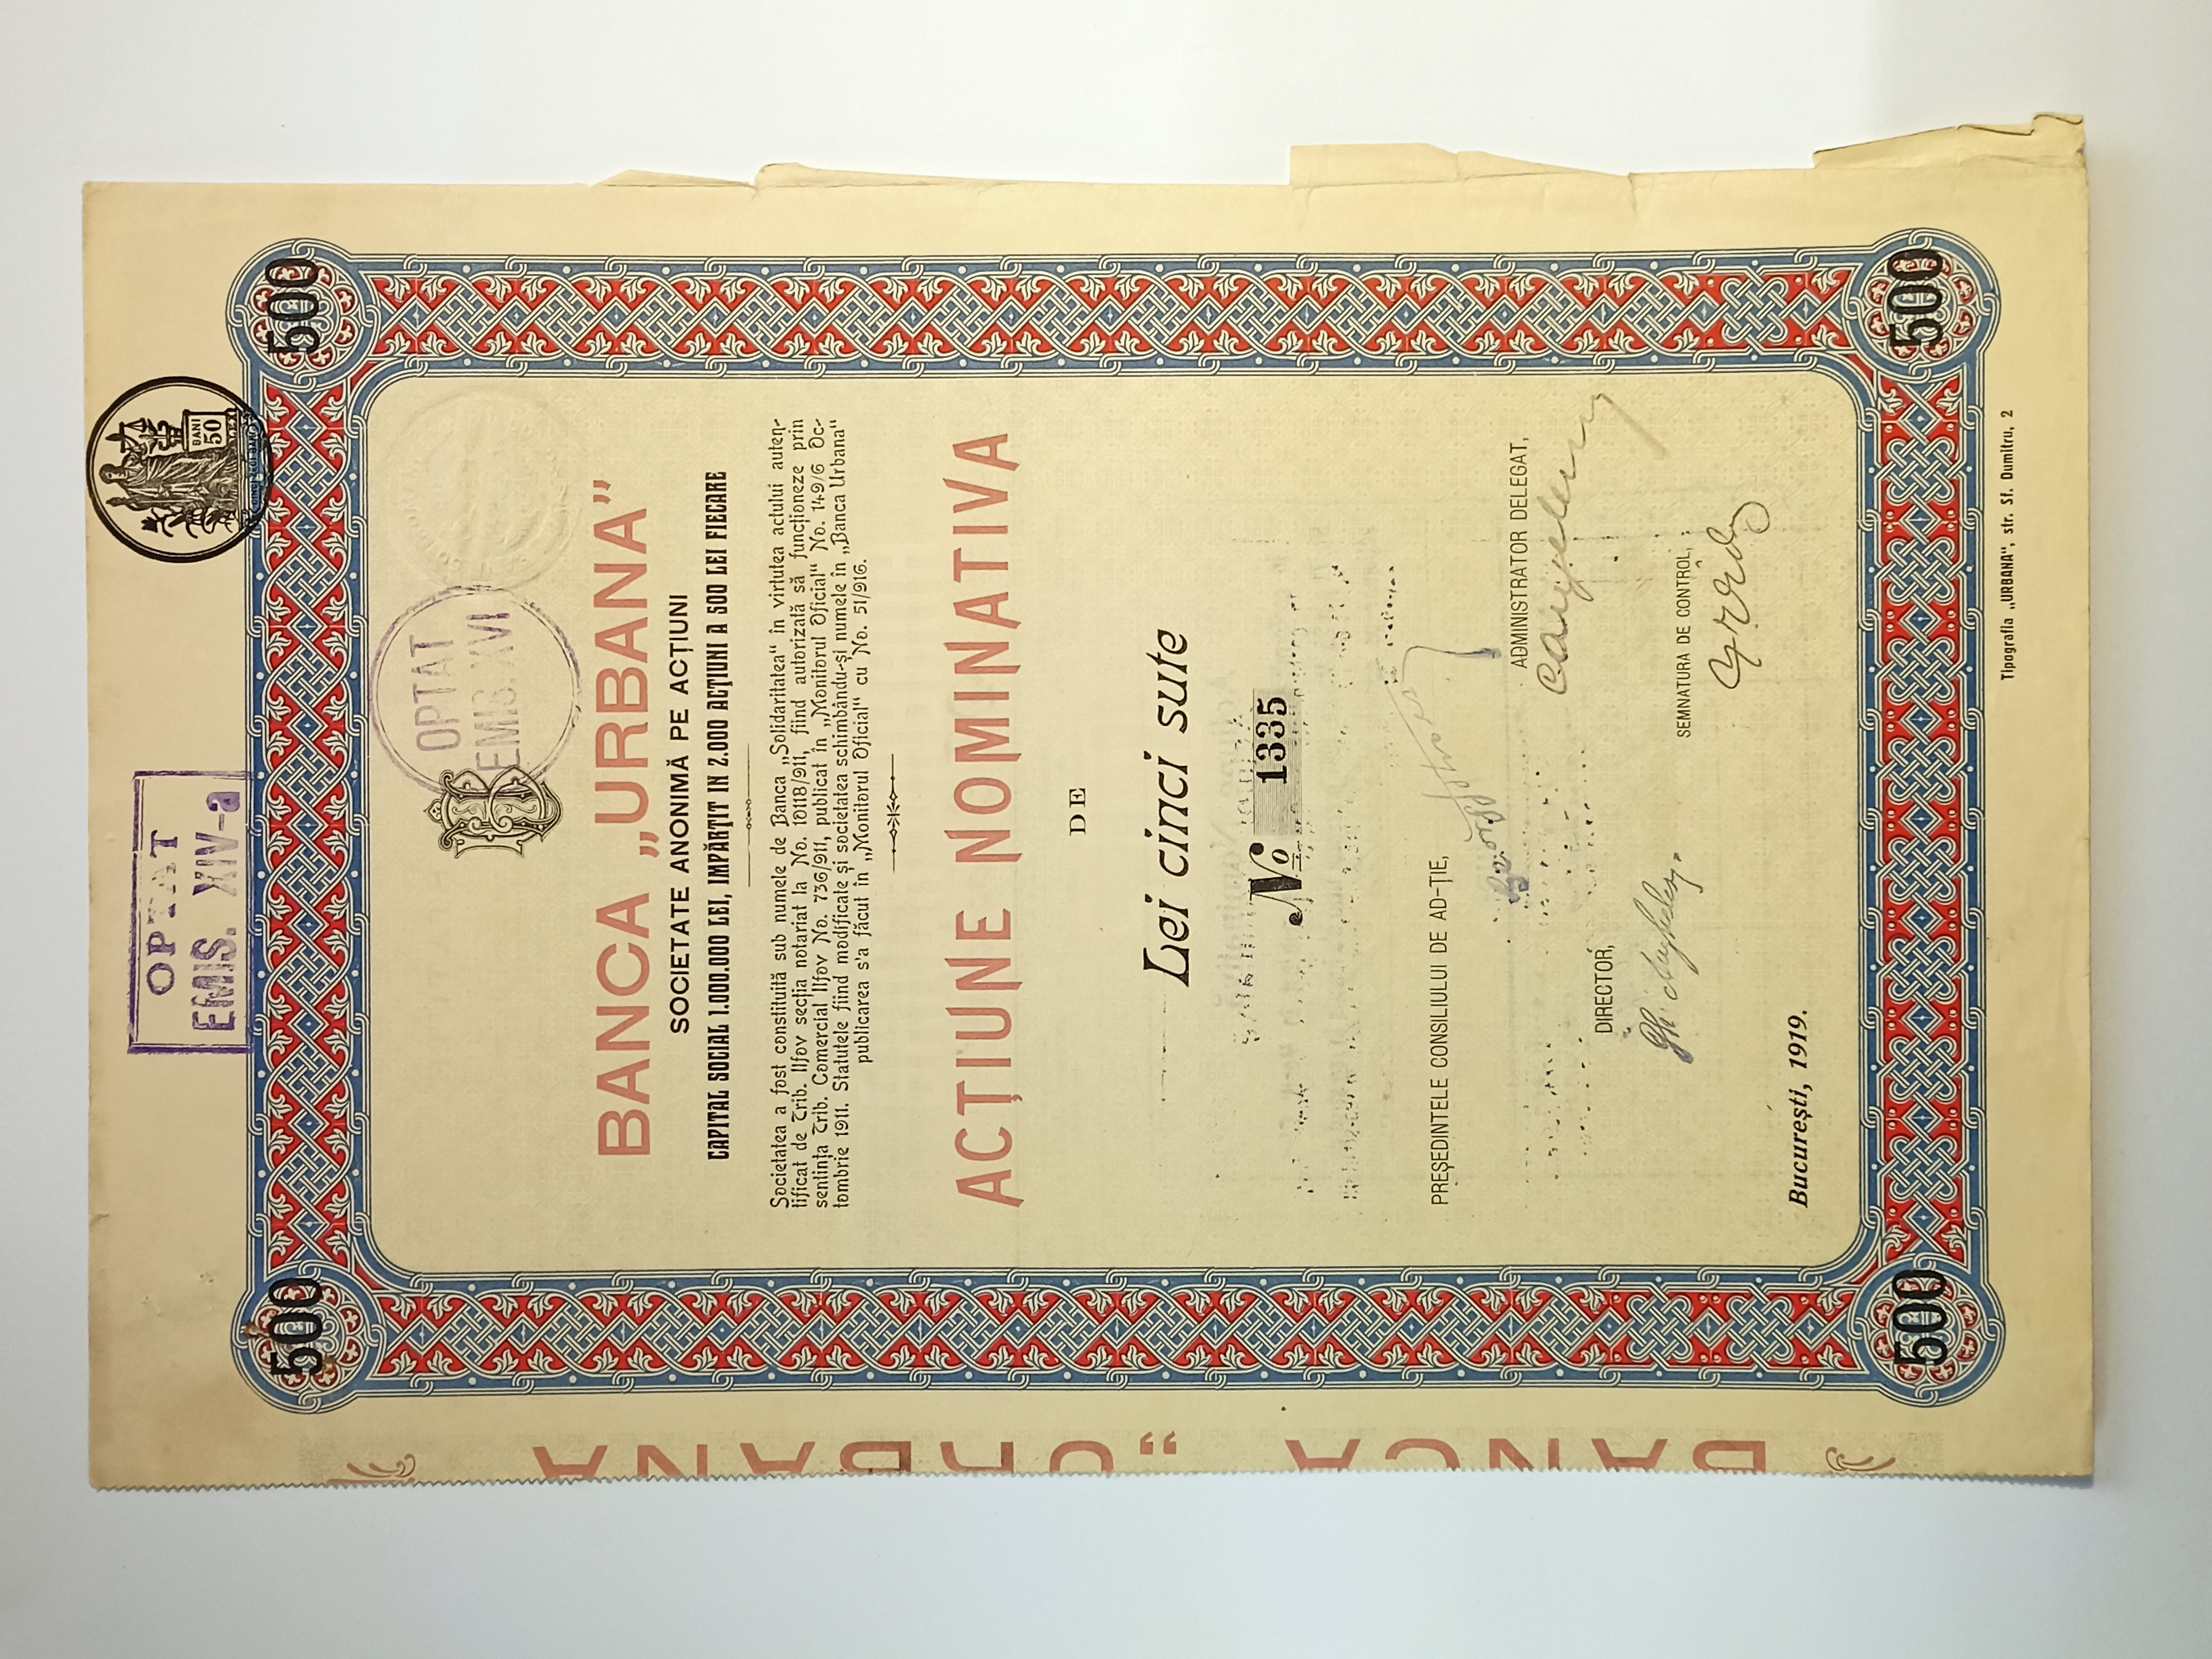 OPTAT
EMIS. XIV-a
BANI
50
500
500
OPTAT
EMIS. XVI
BANCA „URBANA”
SOCIETATE ANONIMĂ PE ACȚIUNI
CAPITAL SOCIAL 1.000.000 LEI, IMPĂRȚIT IN 2.000 ACȚIUNI A 500 LEI FIECARE
Societatea a fost constituită sub numele de Banca „Solidaritatea“ în virtutea actului auten-
tificat de Trib. Ilfov secția notariat la No. 10118/911, fiind autorizată să funcționeze prin
sentința Trib. Comercial Ilfov No. 736/911, publicat în „Monitorul Oficial“ No. 149/6 Oc-
tombrie 1911. Statutele fiind modificate și societatea schimbându-și numele în „Banca Urbana“
publicarea s'a făcut în „Monitorul Oficial“ cu No. 51/916.
ACȚIUNE NOMINATIVA
DE
Lei cinci sute
No 1335
PREȘEDINTELE CONSILIULUI DE AD-ȚIE,
ADMINISTRATOR DELEGAT,
DIRECTOR,
SEMNATURA DE CONTROL,
București, 1919.
500
500
Tipografia „URBANA“, str. Sf. Dumitru, 2
BANCA “URBANA